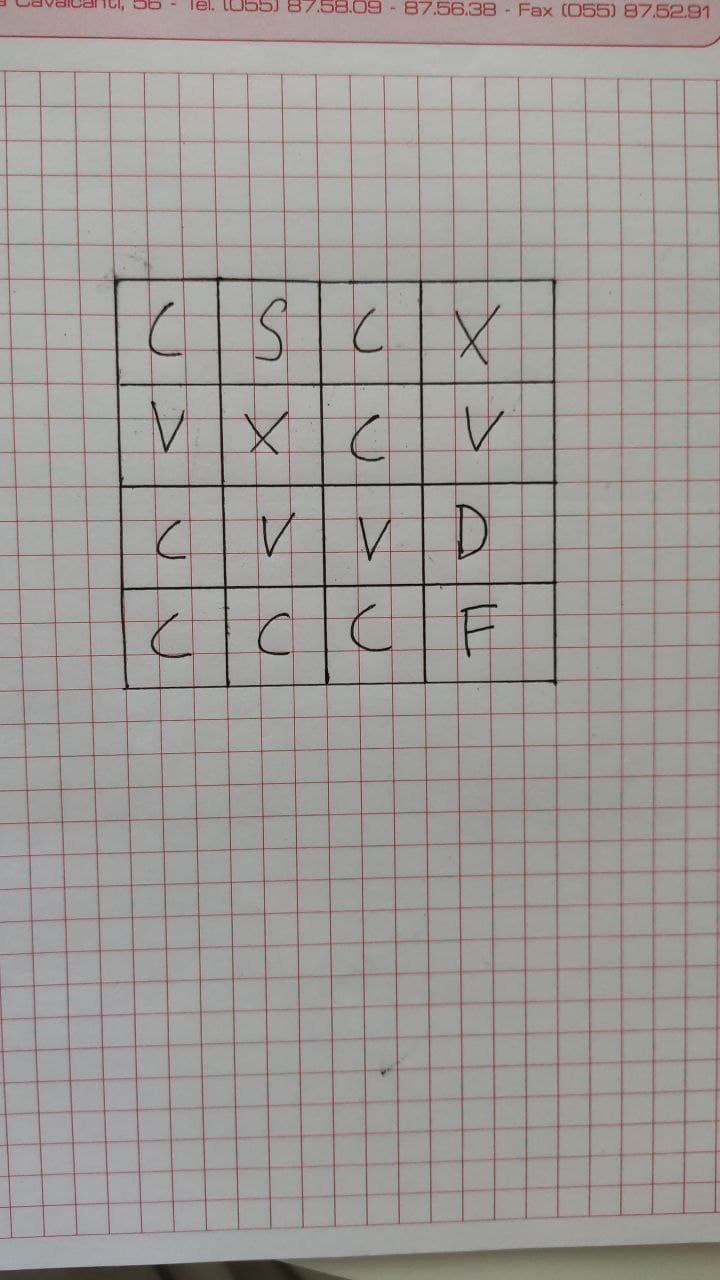 Cavalcanti, 56 - Tel. (055) 87.58.09 - 87.56.38 - Fax (055) 87.52.91
C S C X
V X C V
C V V D
C C C F